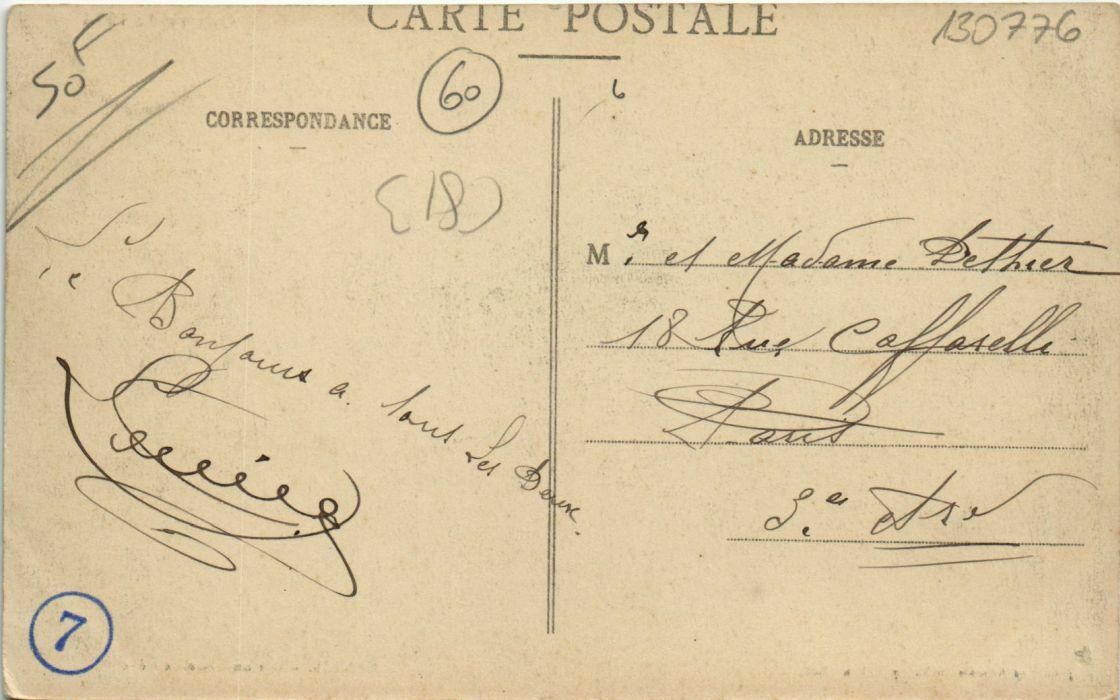 CARTE POSTALE
130776
50F
60
CORRESPONDANCE
ADRESSE
(18)
Bonjours a tous Les Deux.
Mr. et Madame Dethier
18 Rue Caffarelli
Paris
3.e Arr
7